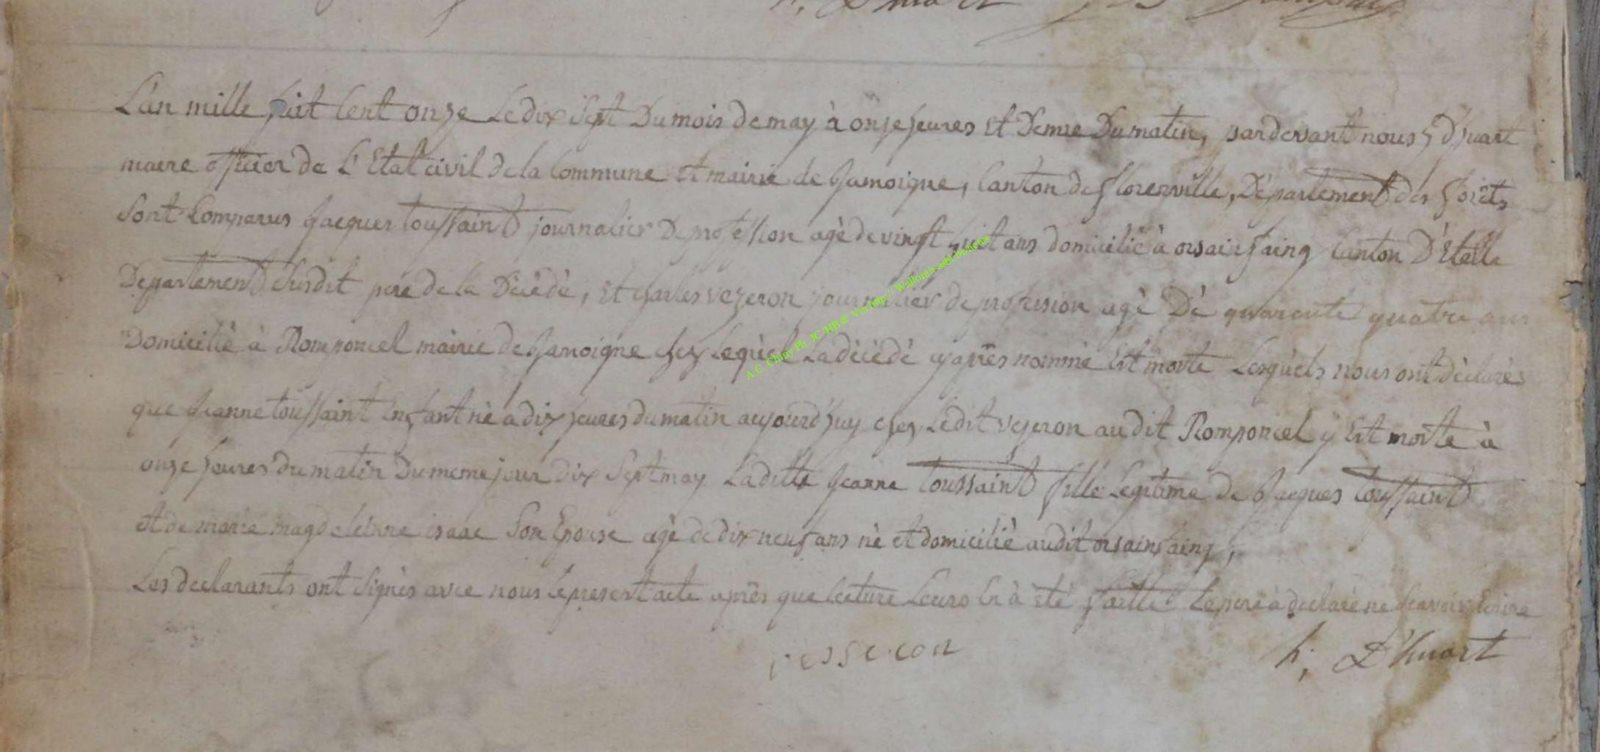 h. D'huart
L'an mille huit Cent onze Le dix Sept Du mois de may à onze heures Et Demie Du matin, pardevant nous h D'huart
maire officier de L'Etat civil de la Commune Et mairie de Jamoigne, Canton de florenville, Département des forêts
Sont Comparus Jacques toussaint journalier De profession agé de vingt huit ans domicilié à orsainfaing Canton D'Etalle
Département Susdit père de la Décédé, et charles vezeron journalier de profession agé Dé quarante quatre ans
Domicilié à Romponcel mairie de Jamoigne chez Lequel La décédé cy après nommé Est morte Lesquels nous ont déclaré
que Jeanne toussaint Enfant né a dix heures du matin aujourd'huy chez Ledit vezeron audit Romponcel y Est morte à
onze heures du matin Du meme jour dix Sept may Laditte Jeanne toussaint fille Légitime de Jacques toussaint
et de marie magdeleinne isaac Son Epouse agé de dix neuf ans né et domicilié audit orsainfaing,
Les declarants ont Signés avec nous le present acte après que lecture Leurs En à été faitte. Le père à déclaré ne scavoir Ecrire
h. D'huart